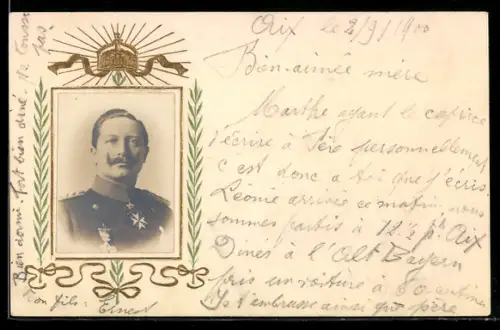 Aix le 2/9/1900
Bien-aimée mère
Marthe ayant le caprice
d'écrire à Père personnellement
c'est donc à toi que j'écris
Léonie arrivée ce matin. nous
sommes partis à 12 ½ pr Aix
Dînés à l'Alt Bayern
pris en voiture à
Je t'embrasse ainsi que père
Ton fils: Ernest
Bien dormi. Fort bien dîné. Ne tousse
pas.